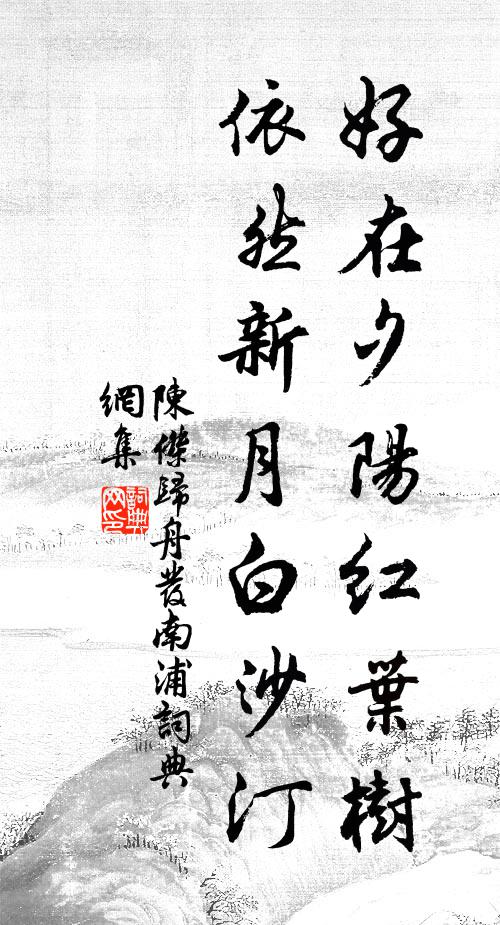 好在夕陽紅葉樹
依然新月白沙汀
陳傑歸舟發南浦詞典
網集
詞典网印